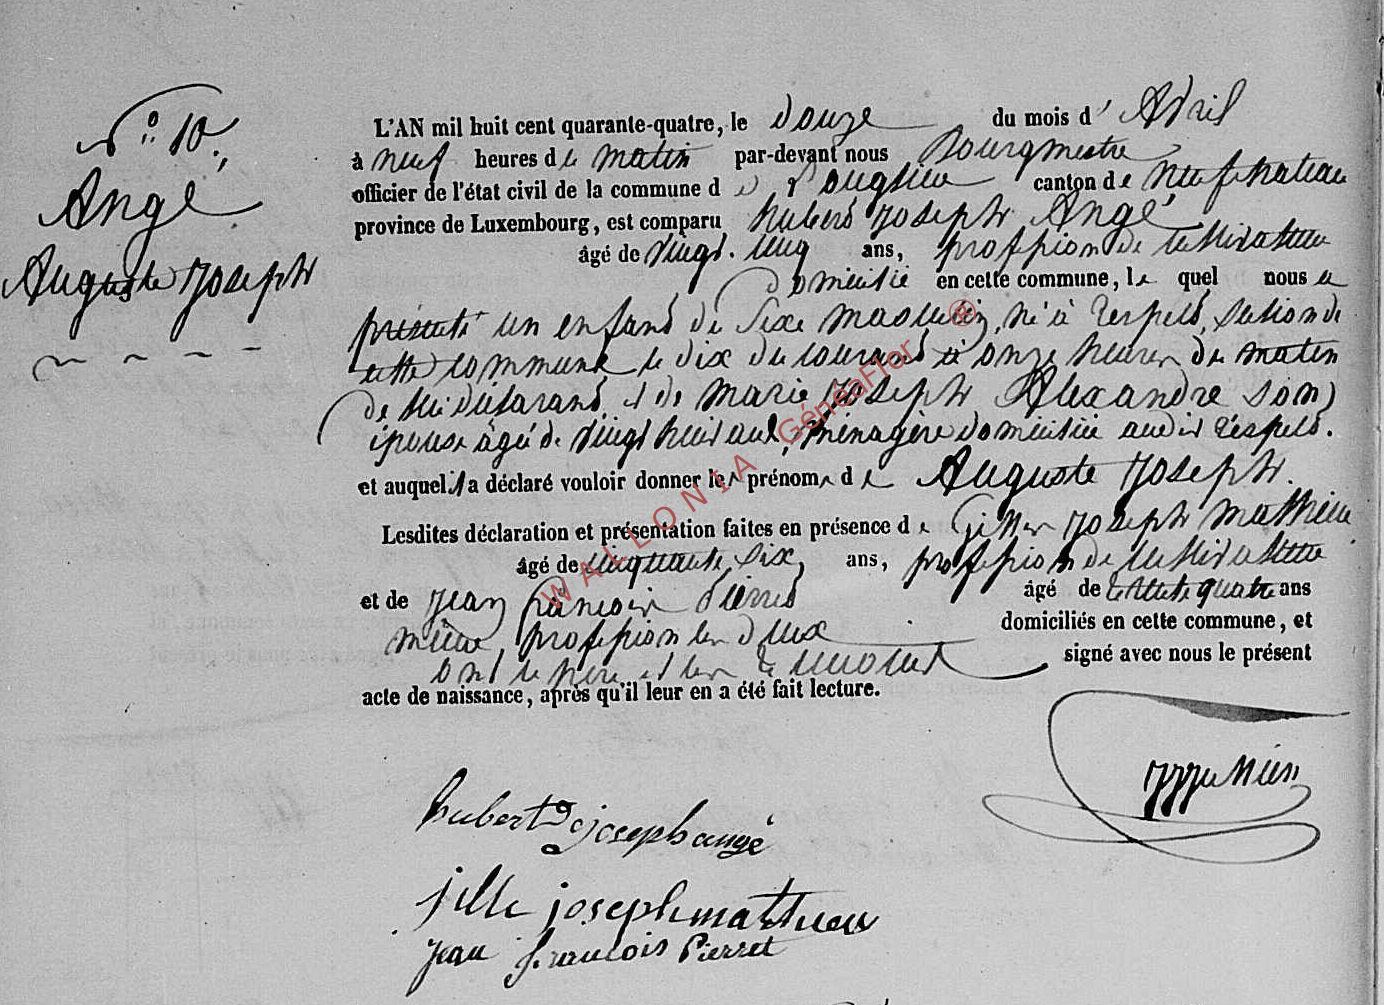 N° 10.
Angé
Auguste Joseph
L'AN mil huit cent quarante-quatre, le douze du mois d' Avril
à neuf heures de matin par-devant nous Bourgmestre
officier de l'état civil de la commune d canton de Neufchateau
province de Luxembourg, est comparu hubert Joseph Angé
âgé de vingt-cinq ans, profession de cultivateur
domicilié en cette commune, le quel nous a
présenté un enfant du sexe masculin, né à Respelt, section de
cette commune le dix du courant à onze heures du matin
de lui déclarant, et de Marie Joseph Alexandre son
épouse âgée de vingt huit ans, ménagère domiciliée audit Respelt.
et auquel il a déclaré vouloir donner les prénoms de Auguste Joseph.
Lesdites déclaration et présentation faites en présence de Gilles Joseph Mathieu
âgé de cinquante six ans, profession de cultivateur
et de Jean françois Pierret âgé de trente quatre ans
même profession les deux domiciliés en cette commune, et
ont le père et les témoins signé avec nous le présent
acte de naissance, après qu'il leur en a été fait lecture.
hubert josephangé
jille josephmathieu
jean francois Pierret
WALLONIA GénéaFlor ®